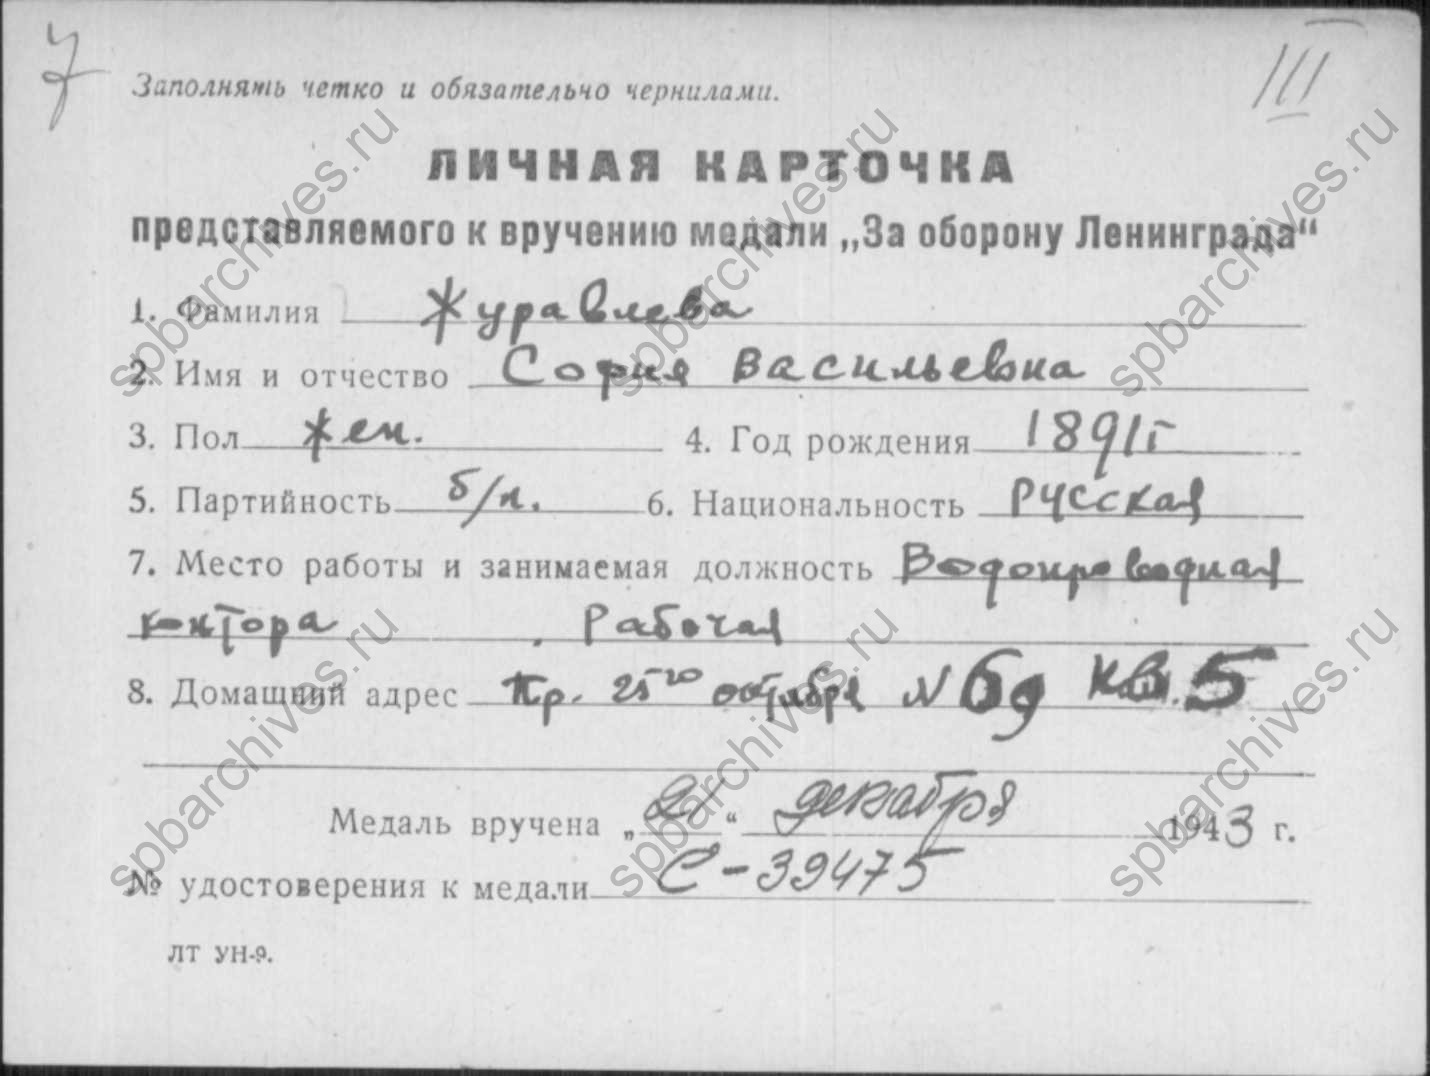 7
III
Заполнять четко и обязательно чернилами.
ЛИЧНАЯ КАРТОЧКА
представляемого к вручению медали „За оборону Ленинграда“
1. Фамилия Журавлева
2. Имя и отчество София Васильевна
3. Пол жен. 4. Год рождения 1891 г
5. Партийность б/п. 6. Национальность Русская
7. Место работы и занимаемая должность Водопроводная
контора. Рабочая
8. Домашний адрес Пр. 25го октября № 69 кв. 5
Медаль вручена „ “ декабря 1943 г.
№ удостоверения к медали С-39475
ЛТ УН-9.
spbarchives.ru
spbarchives.ru
spbarchives.ru
spbarchives.ru
spbarchives.ru
spbarchives.ru